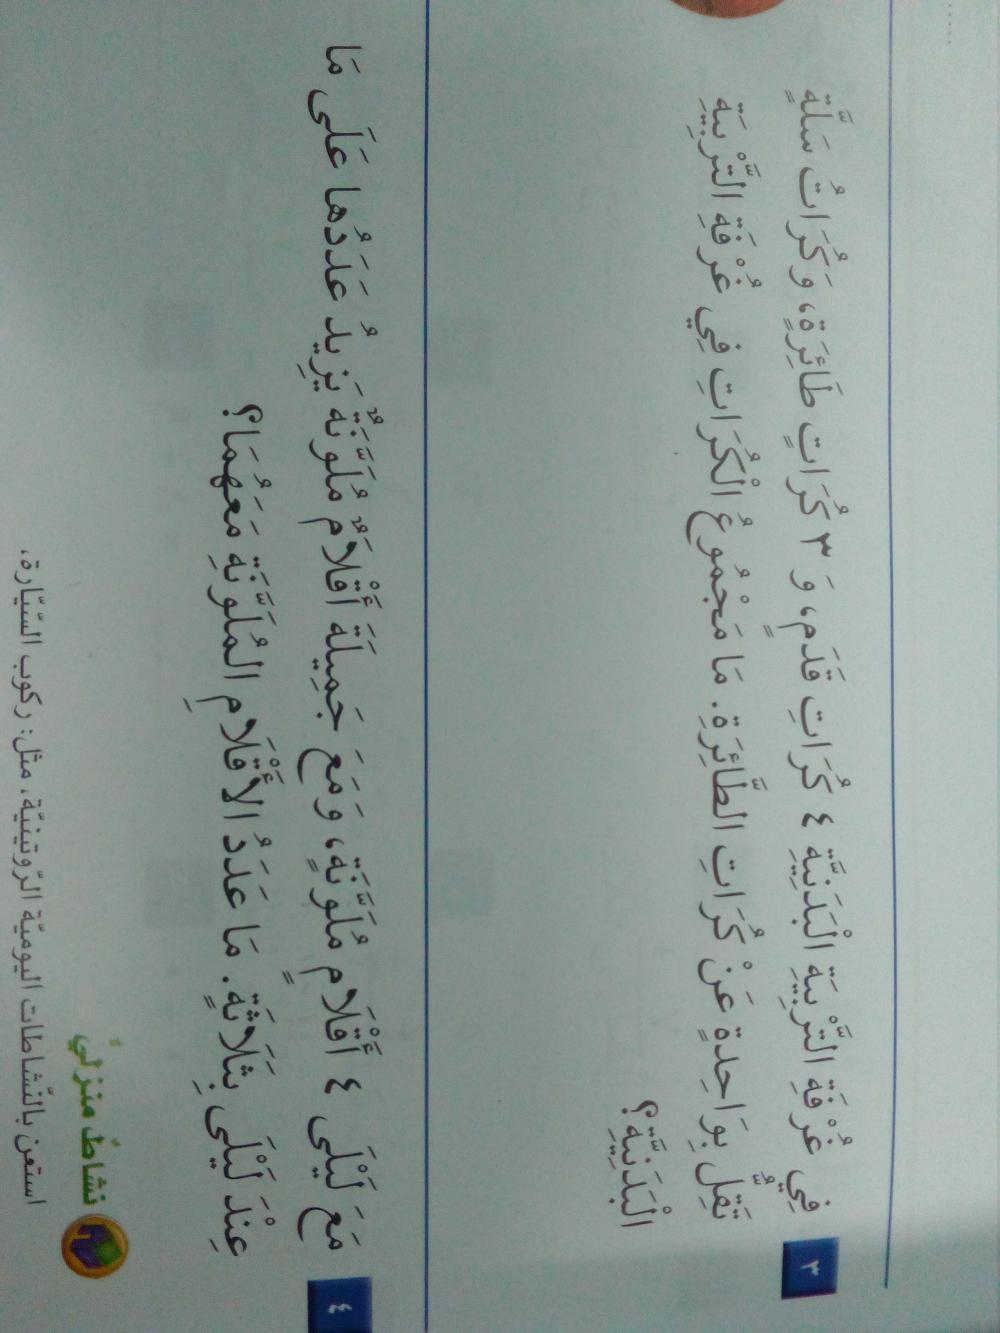 ٣
فِي غُرْفَةِ التَّرْبِيَةِ الْبَدَنِيَّةِ ٤ كُرَاتِ قَدَمٍ، وَ ٣ كُرَاتٍ طَائِرَةٍ، وَكُرَاتُ سَلَّةٍ
تَقِلُّ بِوَاحِدةٍ عَنْ كُرَاتِ الطَّائِرَةِ. مَا مَجْمُوعُ الْكُرَاتِ فِي غُرْفَةِ التَّرْبِيَةِ
الْبَدَنِيَّةِ؟
٤
مَعَ لَيْلَى ٤ أَقْلَامٍ مُلَوَّنَةٍ، وَمَعَ جَمِيلَةَ أَقْلَامٌ مُلَوَّنَةٌ يَزِيدُ عَدَدُها عَلَى مَا
عِنْدَ لَيْلَى بِثَلَاثَةٍ. مَا عَدَدُ الأَقْلَامِ المُلَوَّنَةِ مَعَهُمَا؟
نشاطٌ منزليٌّ
استعن بالنّشاطات اليوميّة الرّوتينيّة، مثل: ركوب السّيّارة،